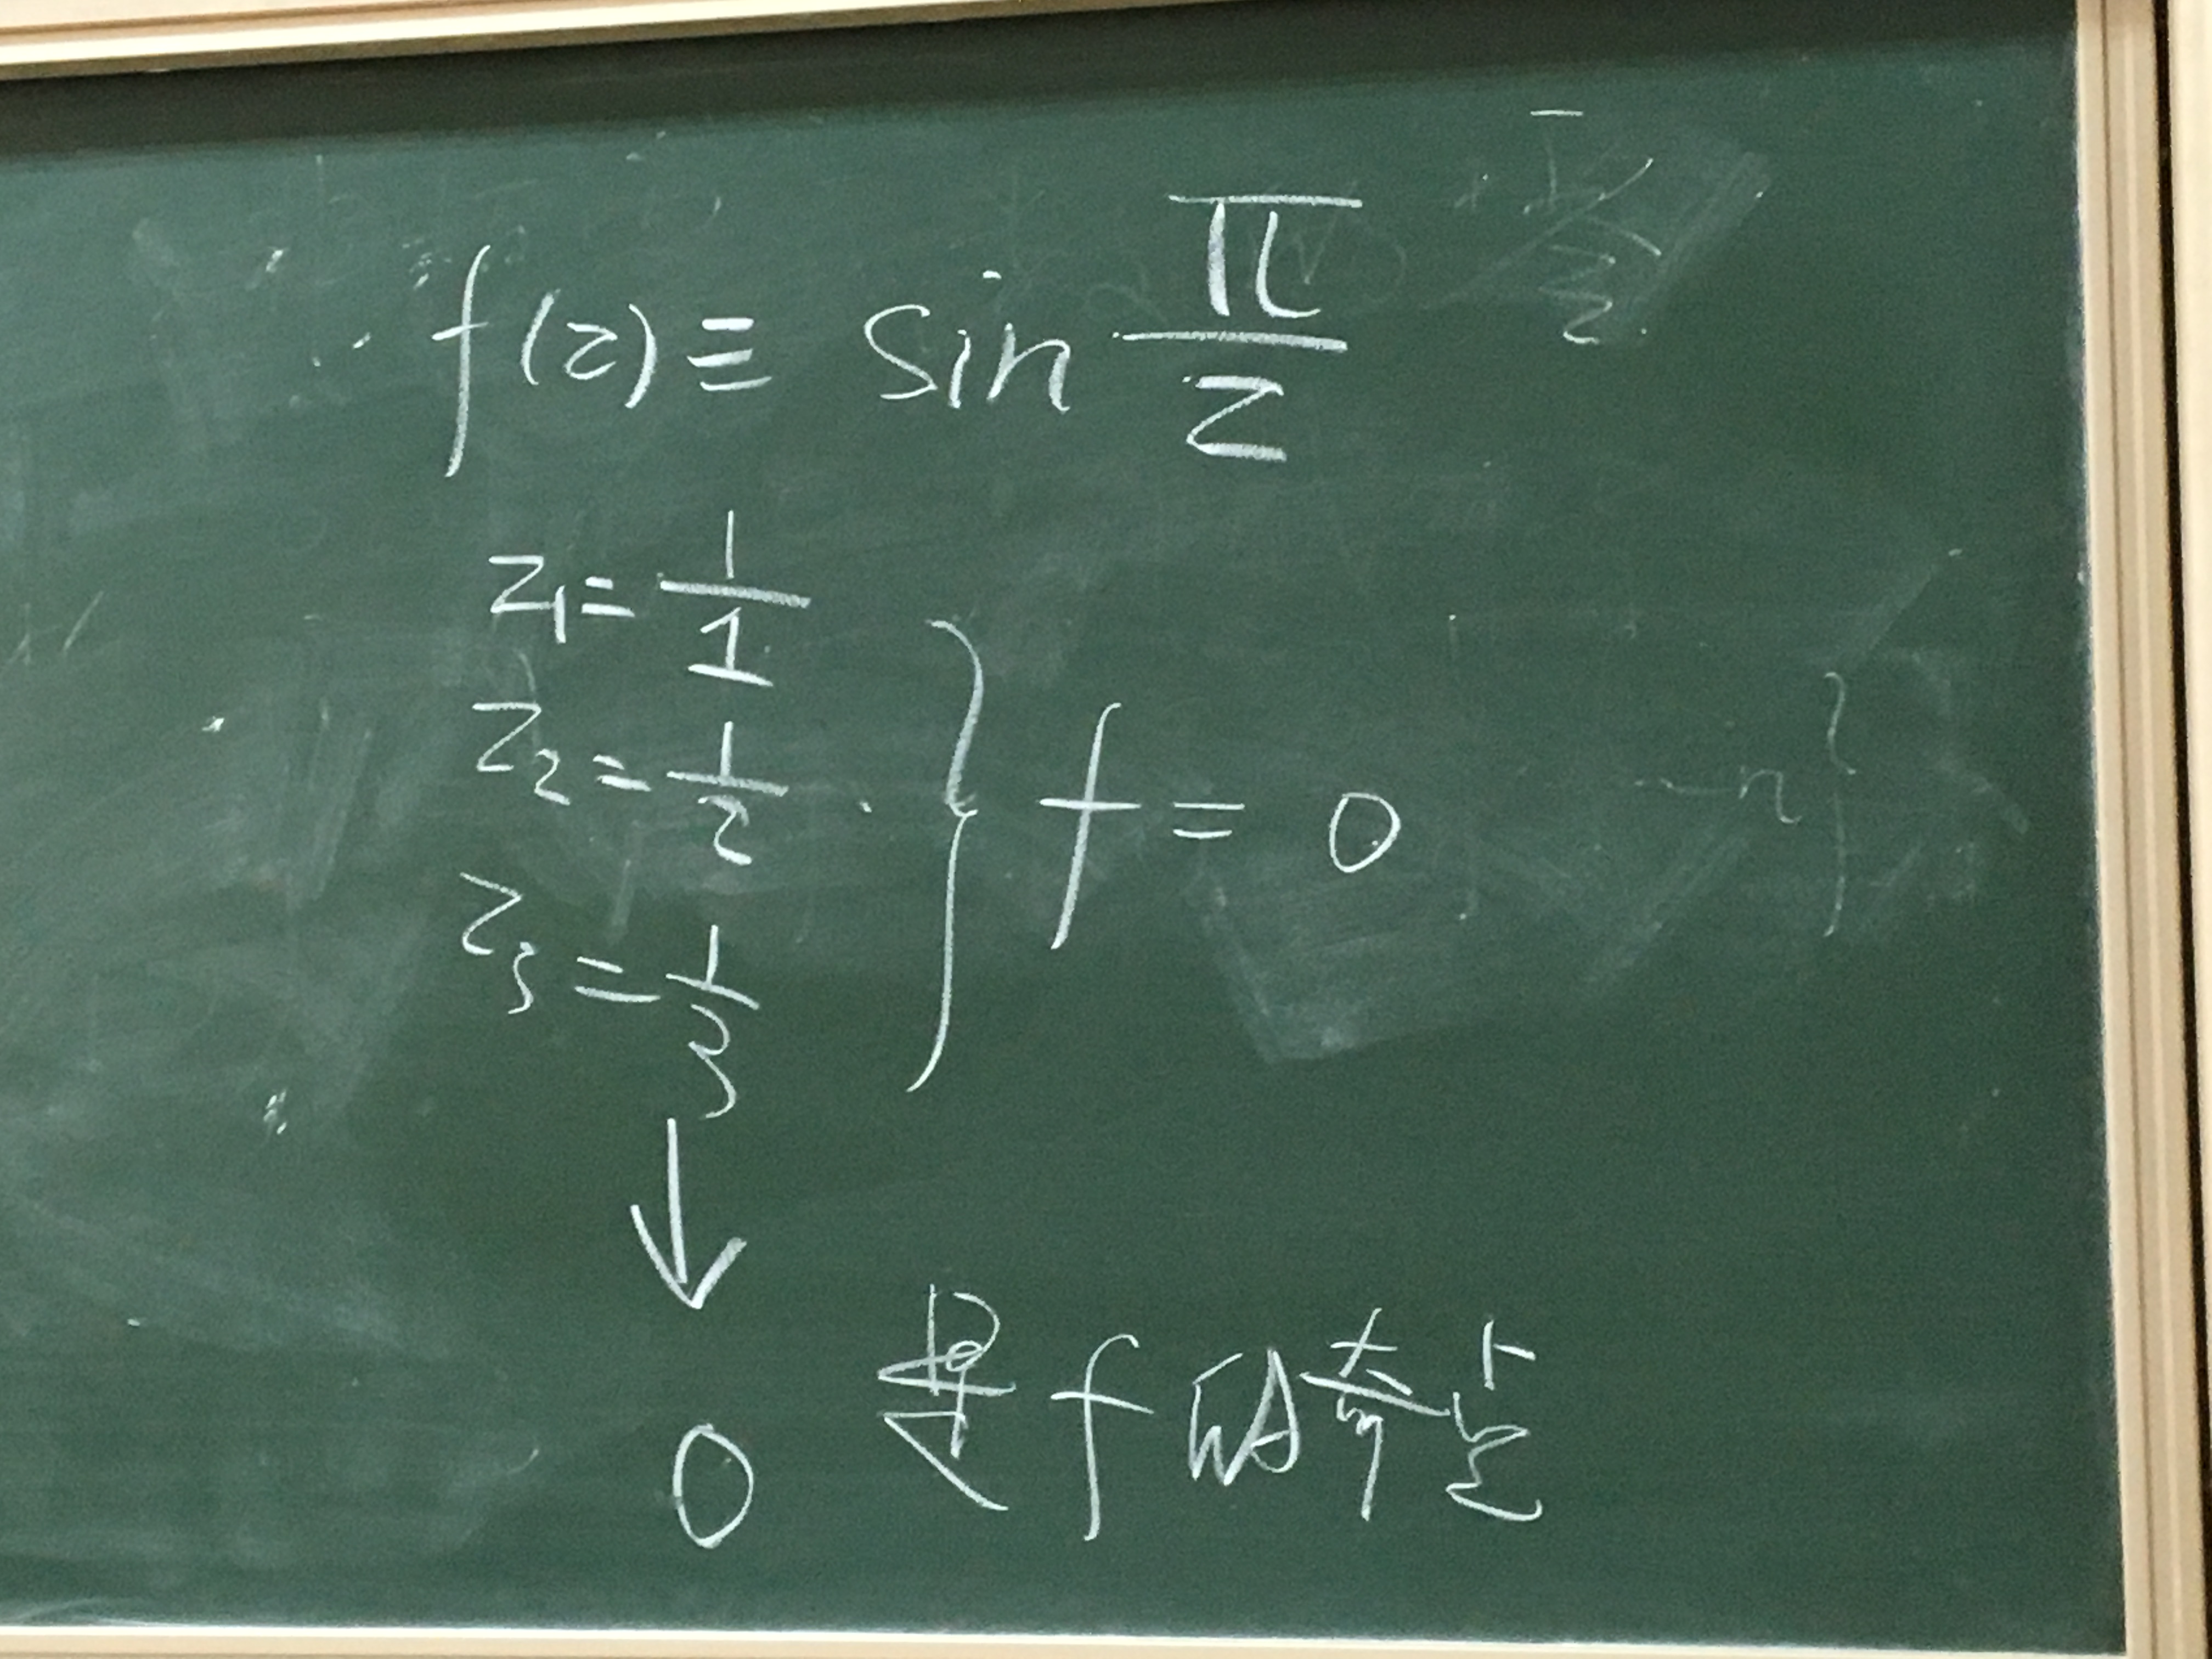 f(z) ≡ sin π/z
z₁ = 1/1
z₂ = 1/2
z₃ = 1/3
} f = 0
↓
0 是 f 的奇点